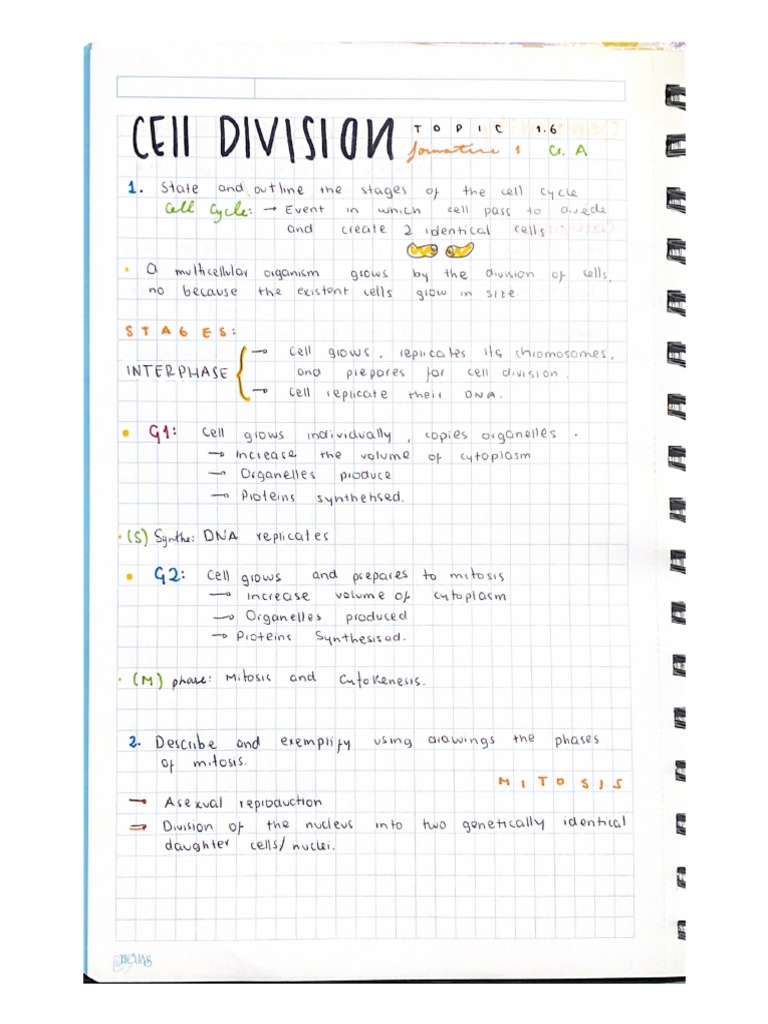 CEll DIVISION TOPIC 1.6
formative 1 Cr. A
1. State and outline the stages of the cell cycle
Cell Cycle: → Event in which cell pass to divide
and create 2 identical cells
• a multicellular organism grows by the division of cells,
no because the existent cells grow in size.
STAGES:
INTERPHASE { → cell grows, replicates its chromosomes,
and prepares for cell division.
→ cell replicate their DNA.
• G1: Cell grows individually, copies organelles.
→ Increase the volume of cytoplasm
→ Organelles produce
→ Proteins synthehsed.
• (S) Synthe: DNA replicates
• G2: Cell grows and prepares to mitosis
→ Increase volume of cytoplasm
→ Organelles produced
→ Proteins Synthesisod.
• (M) phase: Mitosis and Cytokenesis.
2. Describe and exemplify using drawings the phases
of mitosis.
MITOSIS
→ Asexual reproduction
⇒ Division of the nucleus into two genetically identical
daughter cells/nuclei.